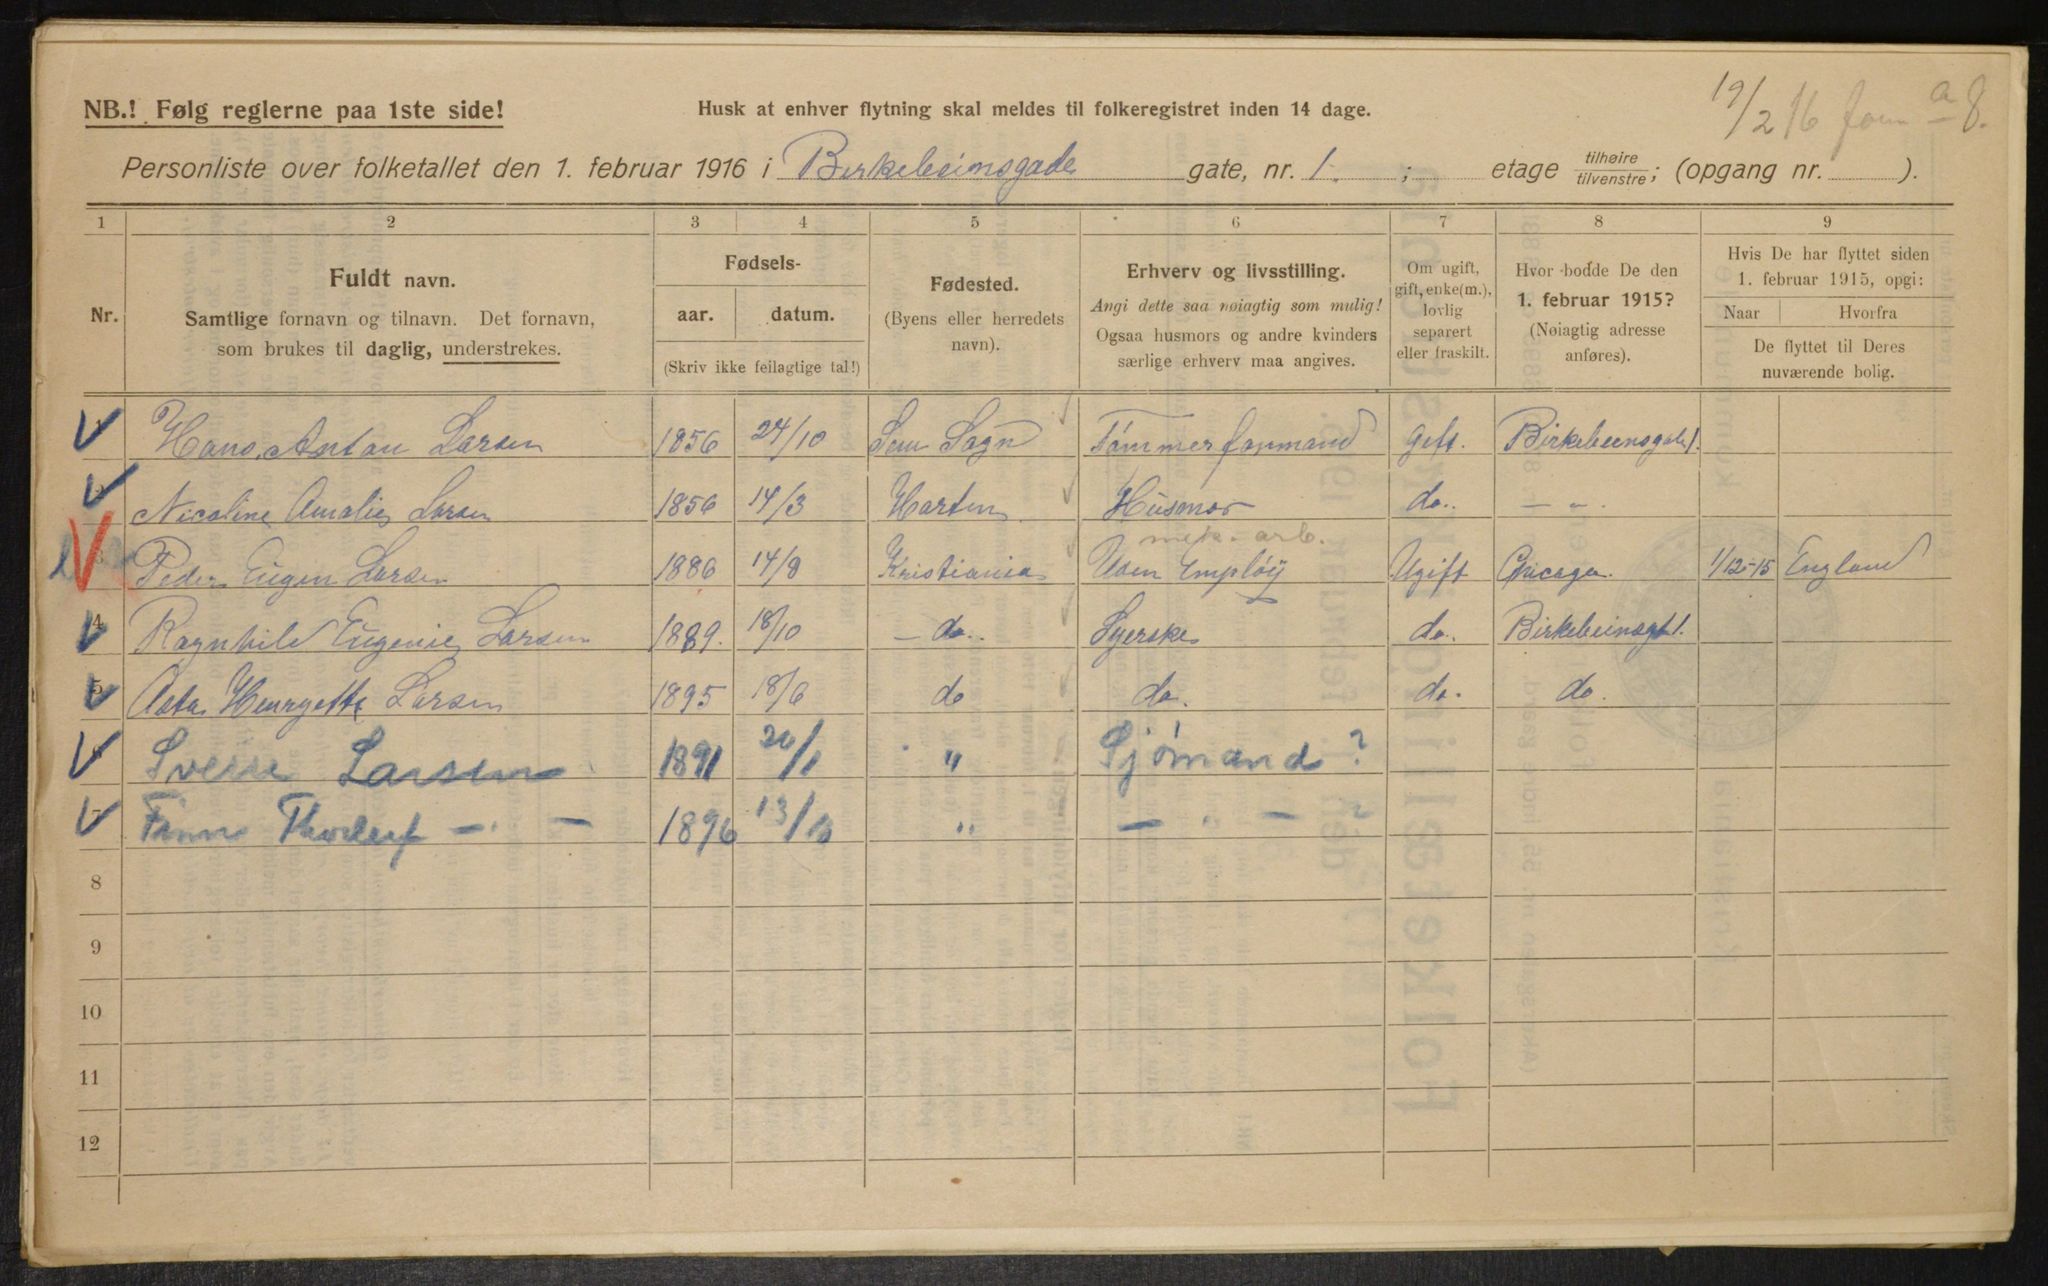 19/2 16
NB.! Følg reglerne paa 1ste side!
Husk at enhver flytning skal meldes til folkeregistret inden 14 dage.
Personliste over folketallet den 1. februar 1916 i Birkebeinsgade gate, nr. 1. ; etage tilhøire tilvenstre; (opgang nr. ).
1 2 3 4 5 6 7 8 9
Nr.
Fuldt navn.
Samtlige fornavn og tilnavn. Det fornavn,
som brukes til daglig, understrekes.
Fødsels-
aar. datum.
(Skriv ikke feilagtige tal!)
Fødested.
(Byens eller herredets
navn).
Erhverv og livsstilling.
Angi dette saa nøiagtig som mulig!
Ogsaa husmors og andre kvinders
særlige erhverv maa angives.
Om ugift,
gift, enke(m.),
lovlig
separert
eller fraskilt.
Hvor bodde De den
1. februar 1915?
(Nøiagtig adresse
anføres).
Hvis De har flyttet siden
1. februar 1915, opgi:
Naar Hvorfra
De flyttet til Deres
nuværende bolig.
Hans Anton Larsen 1856 24/10 Sem Sogn Tømmerformand Gift. Birkebeensgade 1.
Nicoline Amalie Larsen 1856 14/3 Horten Husmor do. — " .
mek. arb.
3 Peder Eugen Larsen 1886 14/8 Kristiania Uden Employ Ugift Chicago. 1/12-15 England
4 Ragnhild Eugenie Larsen 1889. 18/10 — do. Syerske do. Birkebeinsgt 1.
5 Asta Henryette Larsen 1895 18/6 do do. do. do.
6 Sverre Larsen 1891 20/1 " Sjømand ?
7 Finn Thorleif — . — 1896 13/10 " — " — "
8
9
10
11
12